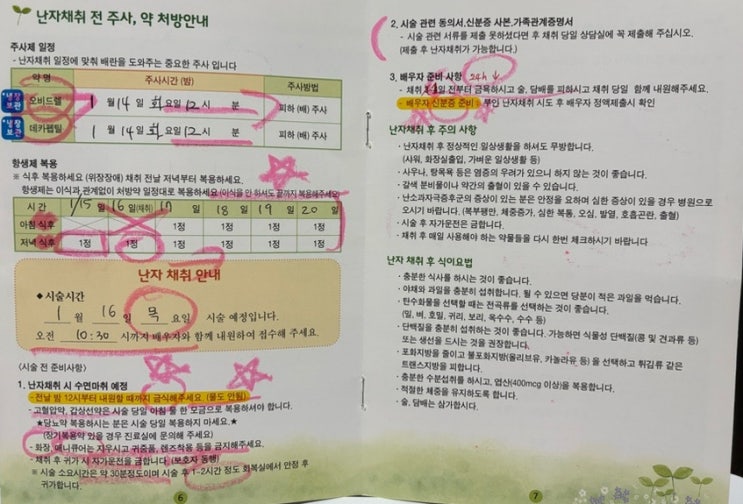 난자채취 전 주사, 약 처방안내
주사제 일정
- 난자채취 일정에 맞춰 배란을 도와주는 중요한 주사 입니다
약 명 주사시간 (밤) 주사방법
냉장보관 오비드렐 1 월 14 일 화 요일 12 시 분 피하 (배) 주사
냉장보관 데카펩틸 1 월 14 일 화 요일 12 시 분 피하 (배) 주사
항생제 복용
※ 식후 복용하세요 (위장장애) 채취 전날 저녁부터 복용하세요.
항생제는 이식과 관계없이 처방약 일정대로 복용하세요 (이식을 안 하셔도 끝까지 복용해주세요)
시 간 1/15 월 16 일(채취) 17 일 18 일 19 일 20 일
아침 식후 1정 1정 1정 1정
저녁 식후 1정 1정 1정 1정 1정 1정
난자 채취 안내
◆시술시간
1 월 16 일 목 요일 시술 예정입니다.
오전 10:30 시까지 배우자와 함께 내원하여 접수해 주세요.
(시술 전 준비사항)
1. 난자채취 시 수면마취 예정
- 전날 밤 12시부터 내원할 때까지 금식해주세요. (물도 안됨)
- 고혈압약, 갑상선약은 시술 당일 아침 물 한 모금으로 복용하셔야 합니다.
★당뇨약 복용하시는 분은 시술 당일 복용하지 마세요.★
(장기복용약 있을 경우 진료실에 문의해 주세요)
- 화장, 매니큐어는 지우시고 귀중품, 렌즈착용 등을 금지해주세요.
- 채취 후 귀가 시 자가운전을 금합니다. (보호자 동행)
※ 시술 소요시간은 약 30분정도이며 시술 후 1~2시간 정도 회복실에서 안정 후
귀가합니다.
6
2. 시술 관련 동의서,신분증 사본,가족관계증명서
- 시술 관련 서류를 제출 못하셨다면 후 채취 당일 상담실에 꼭 제출해 주십시오.
(제출 후 난자채취가 가능합니다.)
3. 배우자 준비 사항 24h ↓
- 채취 3-4일 전부터 금욕하시고 술, 담배를 피하시고 채취 당일 함께 내원해주세요.
- 배우자 신분증 준비 : 부인 난자채취 시도 후 배우자 정액제출시 확인
난자채취 후 주의 사항
· 난자채취 후 정상적인 일상생활을 하셔도 무방합니다.
(샤워, 화장실출입, 가벼운 일상생활 등)
· 사우나, 탕목욕 등은 염증의 우려가 있으니 하지 않는 것이 좋습니다.
· 갈색 분비물이나 약간의 출혈이 있을 수 있습니다.
· 난소과자극증후군의 증상이 있는 분은 안정을 요하며 심한 증상이 있을 경우 병원으로
오시기 바랍니다. (복부팽만, 체중증가, 심한 복통, 오심, 발열, 호흡곤란, 출혈)
· 시술 후 자가운전은 금합니다.
· 채취 후 매일 사용해야 하는 약물들을 다시 한번 체크하시기 바랍니다
난자 채취 후 식이요법
· 충분한 식사를 하시는 것이 좋습니다.
· 야채와 과일을 충분히 섭취합니다. 될 수 있으면 당분이 적은 과일을 먹습니다.
· 탄수화물을 선택할 때는 전곡류를 선택하는 것이 좋습니다.
(밀, 벼, 호밀, 귀리, 보리, 옥수수, 수수 등)
· 단백질을 충분히 섭취하는 것이 좋습니다. 가능하면 식물성 단백질(콩 및 견과류 등)
또는 생선을 드시는 것을 권장합니다.
· 포화지방을 줄이고 불포화지방(올리브유, 카놀라유 등) 을 선택하고 튀김류 같은
트랜스지방을 피합니다.
· 충분한 수분섭취를 하시고, 엽산(400mcg 이상)을 복용합니다.
· 적절한 체중을 유지하도록 합니다.
· 술, 담배는 삼가합시다.
7